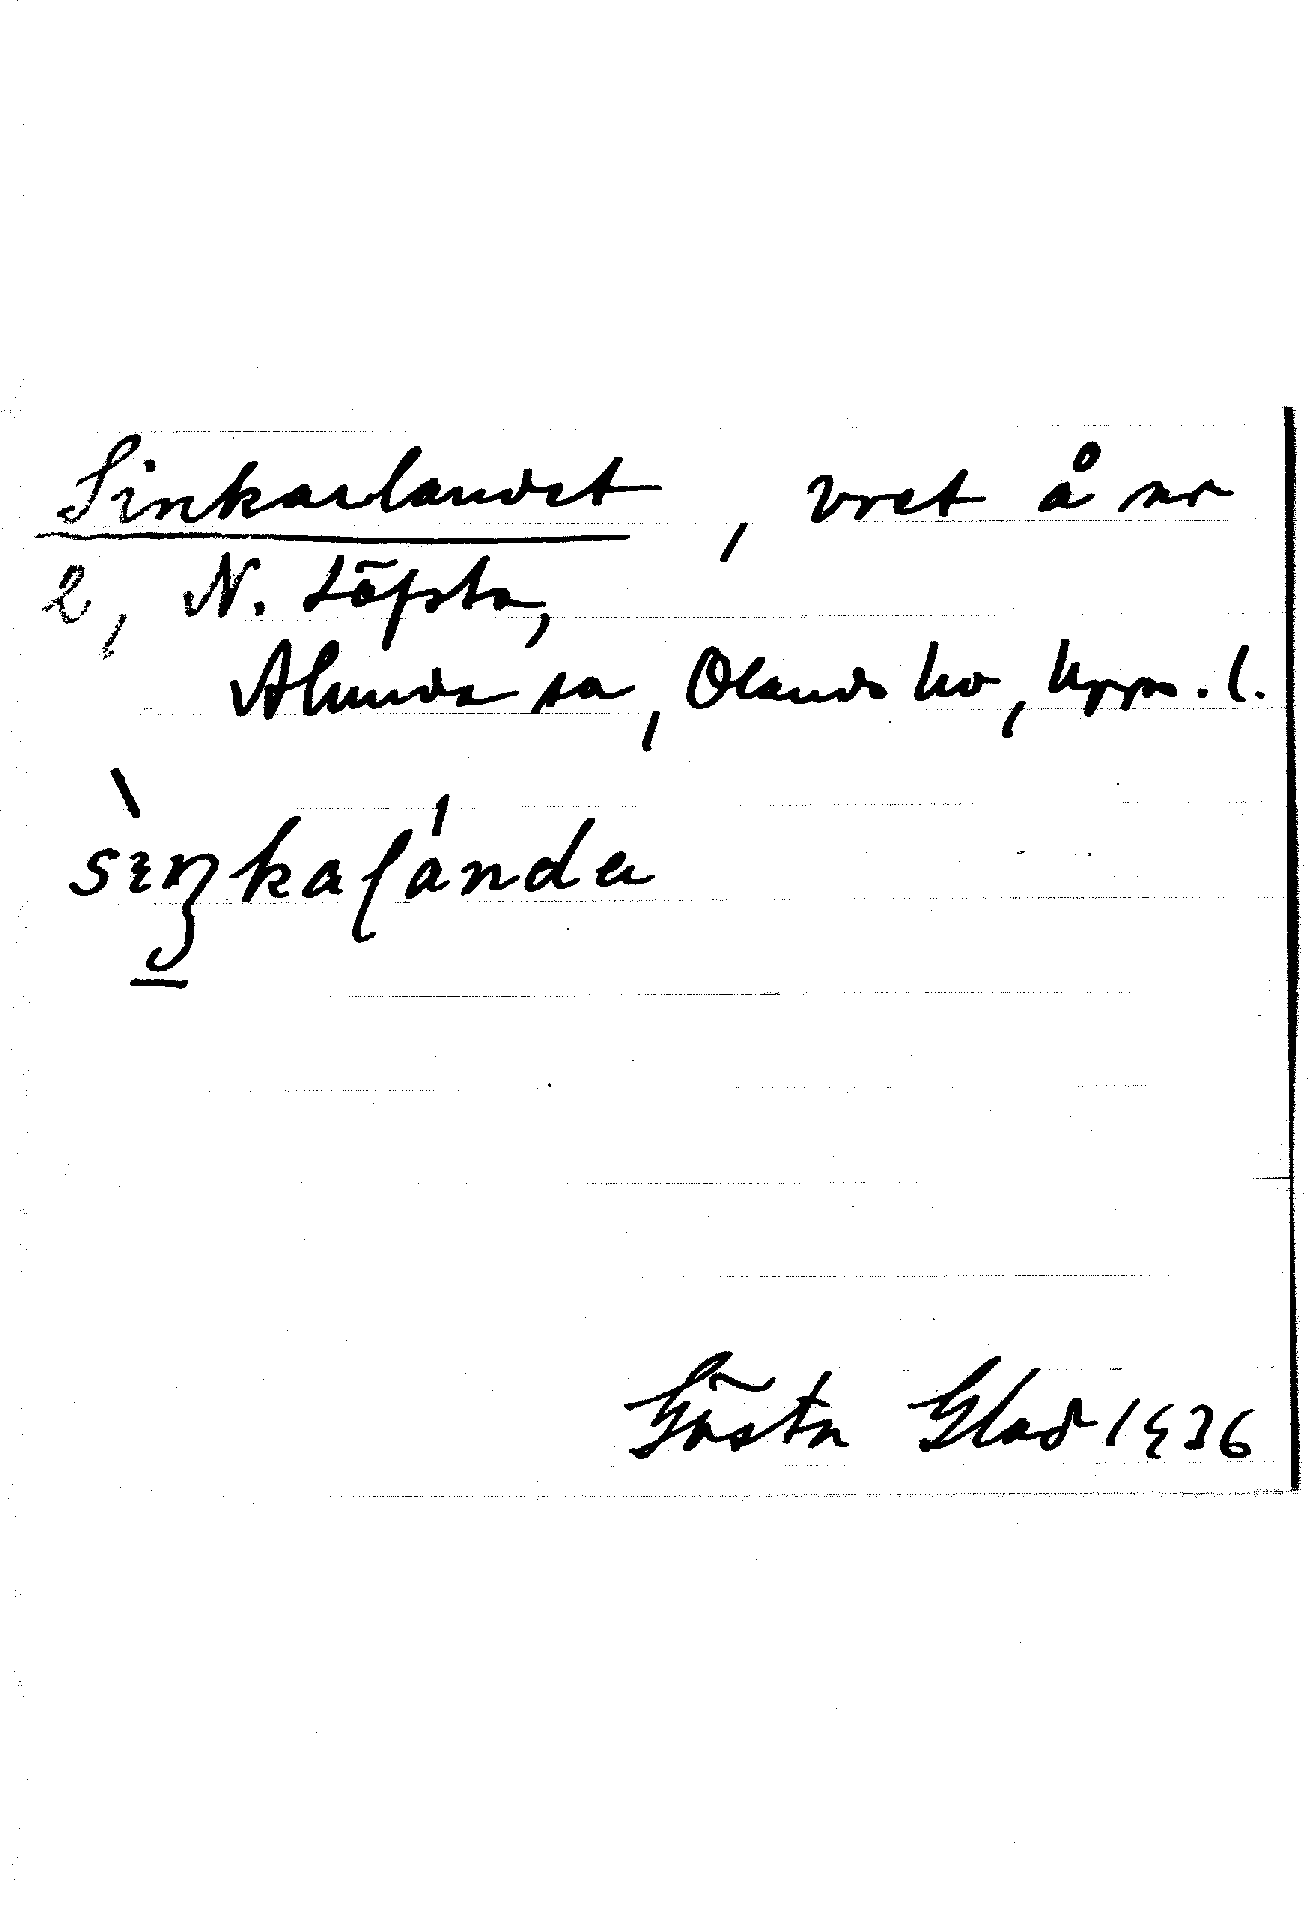 Sinkarlandet, vret å nr
2, N. Löfsta,
Alunda sn, Olands hd, Upps. l.
Gösta Glad 1936